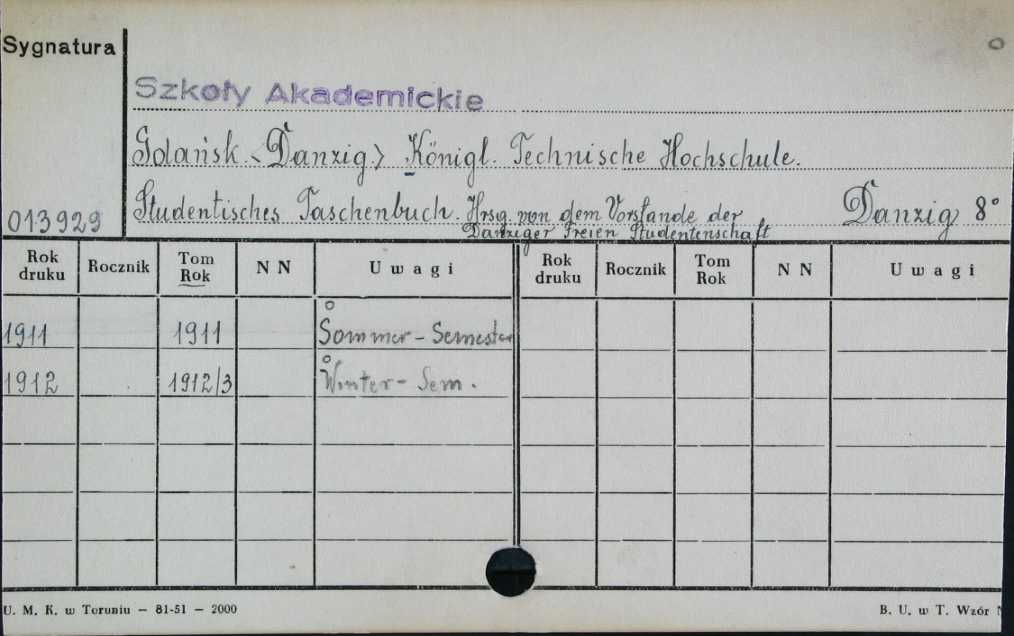 Sygnatura
Szkoły Akademickie
Gdańsk <Danzig> Königl. Technische Hochschule.
Studentisches Taschenbuch. Hrsg. von dem Vorstande der Danzig 8°
013929
Danziger Freien Studentenschaft
Rok druku Rocznik Tom Rok N N Uwagi Rok druku Rocznik Tom Rok N N Uwagi
1911 1911 Sommer-Semester
1912 1912/3 Winter-Sem.
U. M. K. w Toruniu — 81-51 — 2000 B. U. w T. Wzór